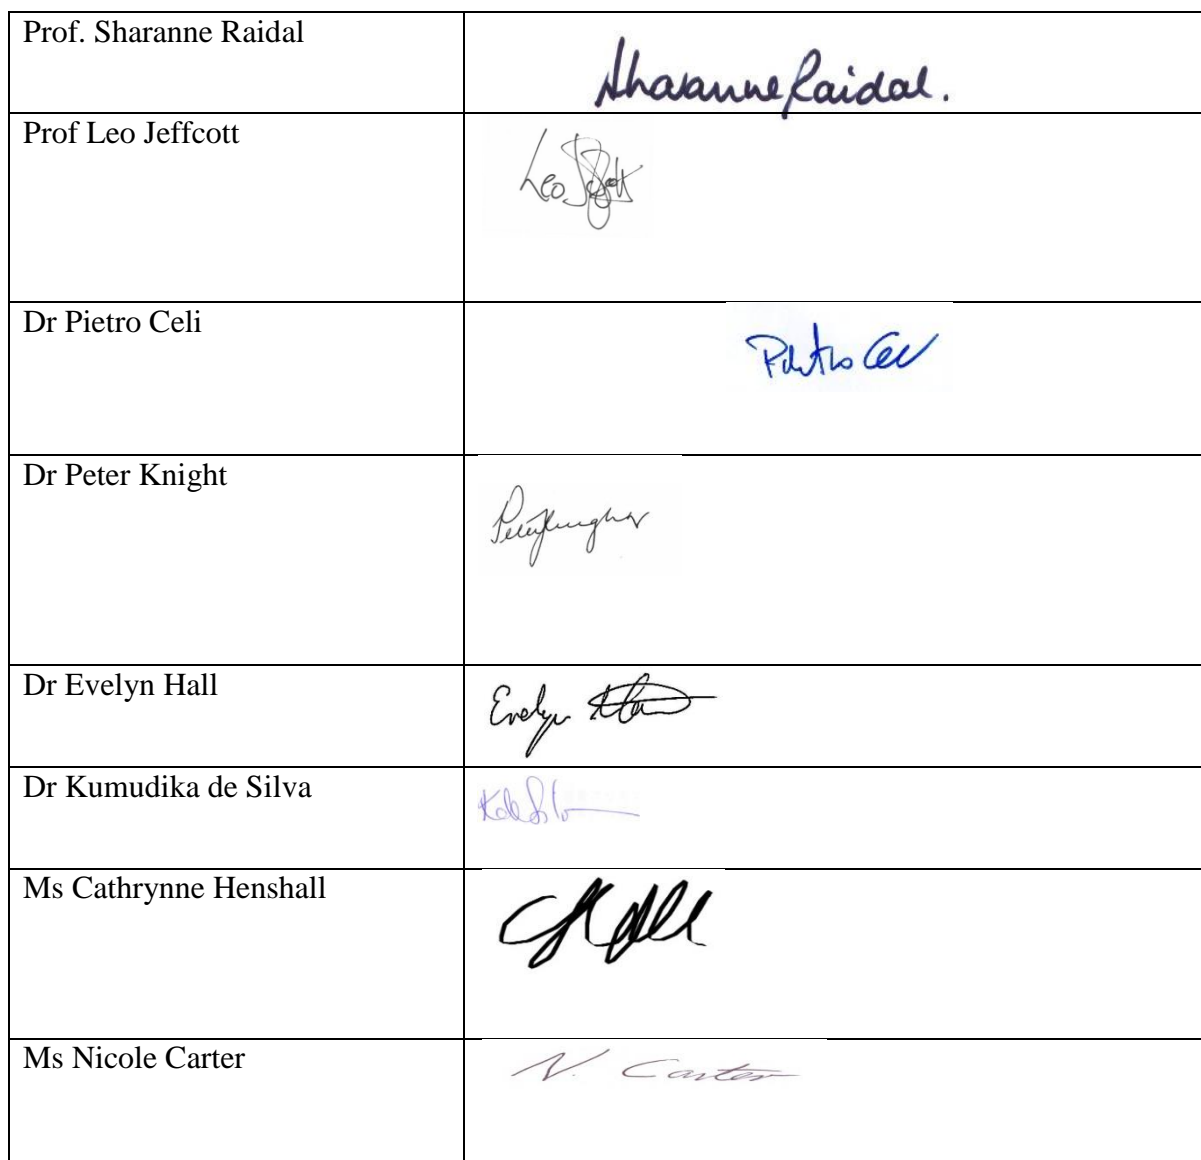 Prof. Sharanne Raidal
Sharanne Raidal.
Prof Leo Jeffcott
Leo
Dr Pietro Celi
Pietro Celi
Dr Peter Knight
Dr Evelyn Hall
Evelyn Hall
Dr Kumudika de Silva
KdeSilva
Ms Cathrynne Henshall
Ms Nicole Carter
N. Carter